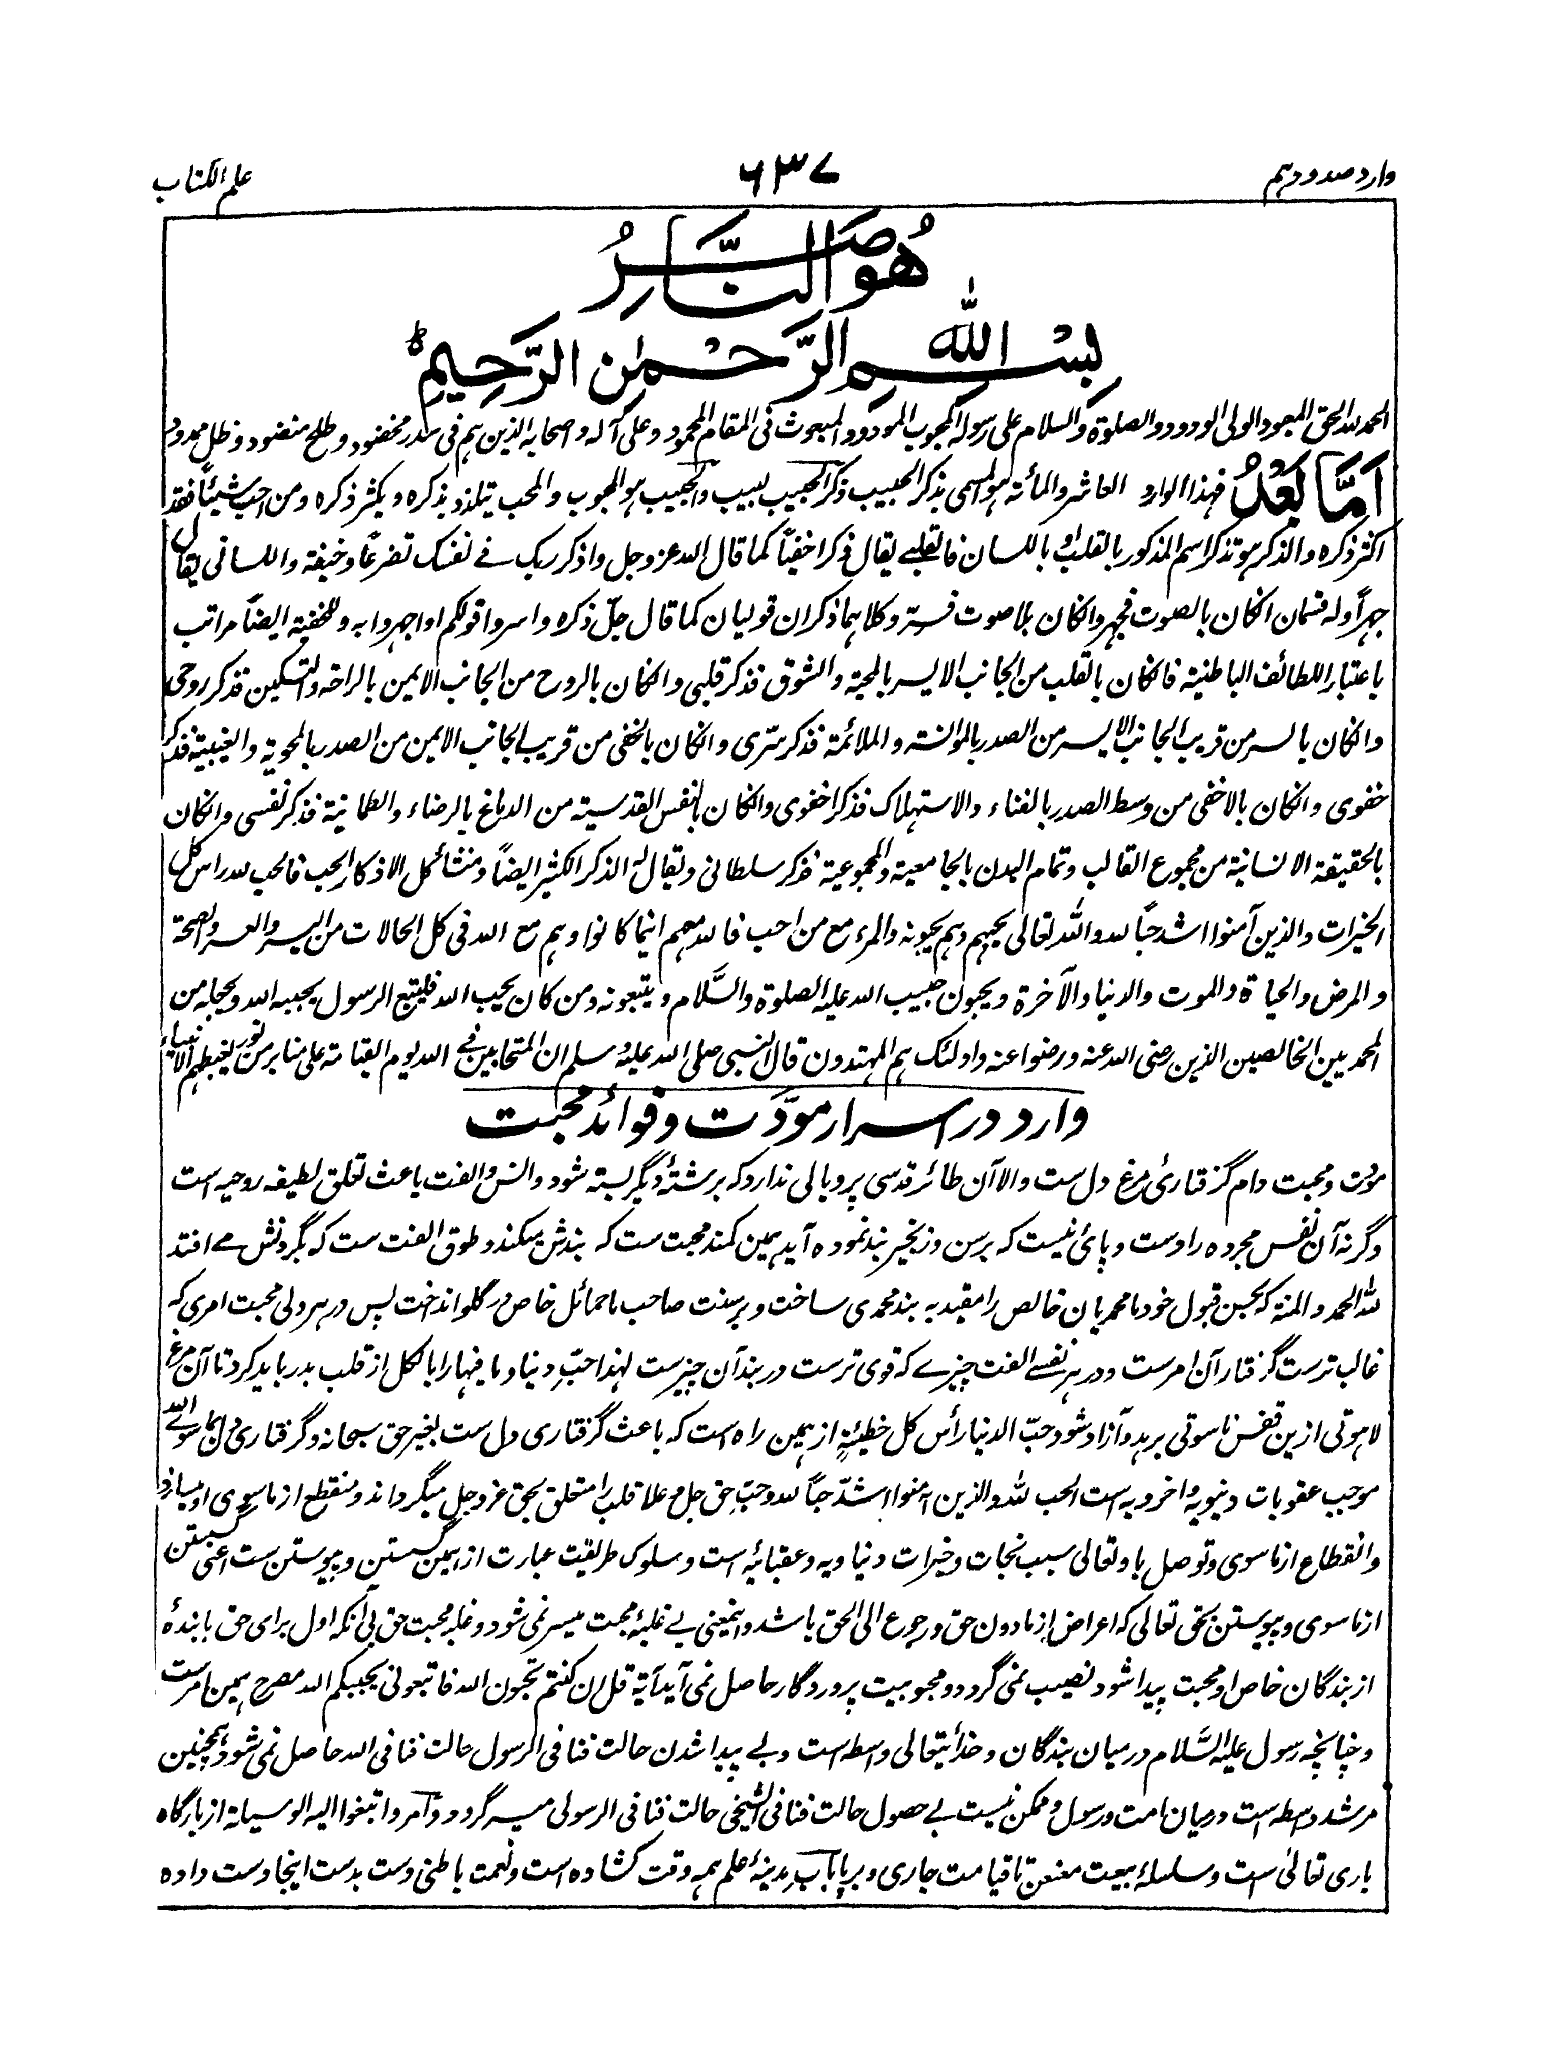 وارد صد و دہم
۶۳۷
علم الکتاب
هُوَ النَّاصِرُ
بِسْمِ اللهِ الرَّحْمٰنِ الرَّحِيْمِ ط
الحمد للہ الحق المعبود الولی الودود والصلوة والسلام علی رسولہ المحبوب المودود المبعوث فی المقام المحمود وعلی آلہ واصحابہ الذین ہم فی سدر مخضود وطلح منضود وظل ممدود
اَمَّا بَعْدُ فہذا الوارد العاشر والمأتہ ہو المسمی بذکر الحبیب ذکر الحبیب لبیب والحبیب ہو المحبوب والمحب یتلذذ بذکرہ ویکثر ذکرہ ومن احب شیئاً فقد
اکثر ذکرہ والذکر ہو تذکر اسم المذکور بالقلب او باللسان فالقلبے یقال ذکرا خفیّاً کما قال اللہ عز وجل واذکر ربک فے نفسک تضرعاً وخیفۃ واللسانی یقال
جہراً ولہ قسمان انکان بالصوت فجہر وانکان بلا صوت فسِرّ وکلاہما ذکران قولیان کما قال جلّ ذکرہ واسروا قولکم او اجہروا بہ وللخفیۃ ایضاً مراتب
باعتبار اللطائف الباطنیۃ فانکان بالقلب من الجانب الایسر بالمحبۃ والشوق فذکر قلبی وانکان بالروح من الجانب الایمن بالراحۃ والتسکین فذکر روحی
وانکان بالسر من قریب الجانب الایسر من الصدر بالموانستہ والملائمۃ فذکر سّری وانکان بالخفی من قریب الجانب الایمن من الصدر بالمحویۃ والغیبیۃ فذکر
خفوی وانکان بالاخفی من وسط الصدر بالفناء والاستہلاک فذکر اخفوی وانکان بالنفس القدسیۃ من الدماغ بالرضاء والطمانیۃ فذکر نفسی وانکان
بالحقیقۃ الانسانیۃ من مجموع القالب وتمام البدن بالجامعیۃ والمجموعیۃ فذکر سلطانی ویقال لہ الذکر الکثیر ایضاً ومنشائ کل الاذکار الحب فالحب للہ راس کل
الخیرات والذین آمنوا اشد حبّاً للہ واللہ تعالی یحبہم وہم یحبونہ والمرء مع من احب فاللہ معہم اینما کانوا وہم مع اللہ فی کل الحالات من الیسر والعسر والصحۃ
والمرض والحیاۃ والموت والدنیا والآخرۃ ویحبون حبیب اللہ علیہ الصلوۃ والسَّلام ویتبعونہ ومن کان یحب اللہ فلیتبع الرسول یحببہ اللہ ویجعلہ من
المحمدیین الخالصین الذین رضی اللہ عنہ ورضوا عنہ واولئک ہم المہتدون قال النبی صلی اللہ علیہ وسلم ان المتحابین فے اللہ یوم القیامۃ علی منابر من نور یغبطہم الانبیاء
وارد در اسرار مودّت و فوائد محبت
مودّت ومحبت دام گرفتاریٔ مرغ دل ست والا آن طائر قدسی پر وبالی ندارد کہ برشتۂ دیگر بستہ شود وانس والفت باعث تعلق لطیفہ روحیہ است
وگرنہ آن نفس مجردہ را دست وپائ نیست کہ برسن وزنجیر بند نمودہ آید ہمین کمند محبت ست کہ بندش میکند وطوق الفت ست کہ بگردنش مے افتد
للّٰہ الحمد والمنہ کہ بحسن قبول خود ما محمدیان خالص را مقید بہ بند محمدی ساخت وبرسنت صاحب ما حمائل خاص در گلو انداخت پس در ہر دلی محبت امری کہ
غالب ترست گرفتار آن امرست ودر ہر نفسے الفت چیزے کہ قوی ترست در بند آن چیزست لہذا حبّ دنیا وما فیہا را بالکل از قلب بدر باید کرد تا آن مرغ
لاہوتی ازین قفس ناسوتی برہد وآزاد شود حبّ الدنیا رأس کل خطیئۃٍ از ہمین راہ است کہ باعث گرفتاری دل ست بغیر حق سبحانہ وگرفتاری دل بما سوی اللہ
موجب عقوبات دنیویہ واخرویہ است الحب للہ والذین آمنوا اشدّ حبّاً للہ وحبّ حق جل وعلا قلب را متعلق بحق عز وجل میگرداند ومنقطع از ماسوی او میسازد
وانقطاع از ماسوی وتوصل باو تعالی سبب نجات وخیرات دنیاویہ وعقبائیہ است وسلوک طریقت عبارت از ہمین گسستن وپیوستن ست اعنی گسستن
از ماسوی وپیوستن بحق تعالی کہ اعراض از مادون حق ورجوع الی الحق باشد واینمعنی بے غلبۂ محبت میسر نمی شود وغلبہ محبت حق بی آنکہ اول برای حق با بندۂ
از بندگان خاص او محبت پیدا شود نصیب نمی گردد ومحبوبیت پروردگار حاصل نمی آید آیۂ قل ان کنتم تحبون اللہ فاتبعونی یحببکم اللہ مصرح ہمین امرست
وچنانچہ رسول علیہ السَّلام درمیان بندگان وخدایتعالی واسطہ است وبے پیدا شدن حالت فنا فی الرسول حالت فنا فی اللہ حاصل نمی شود ہمچنین
مرشد واسطہ است درمیان امت ورسول وممکن نیست بے حصول حالت فنا فی الشیخی حالت فنا فی الرسولی میسر گردد وامر وابتغوا الیہ الوسیلۃ از بارگاہ
باری تعالیٰ ست وسلسلۂ بیعت معنعن تا قیامت جاری وبرپا باب مدینۂ علم ہمہ وقت کشادہ است ونعمت باطنی دست بدست اینجا دست دادہ